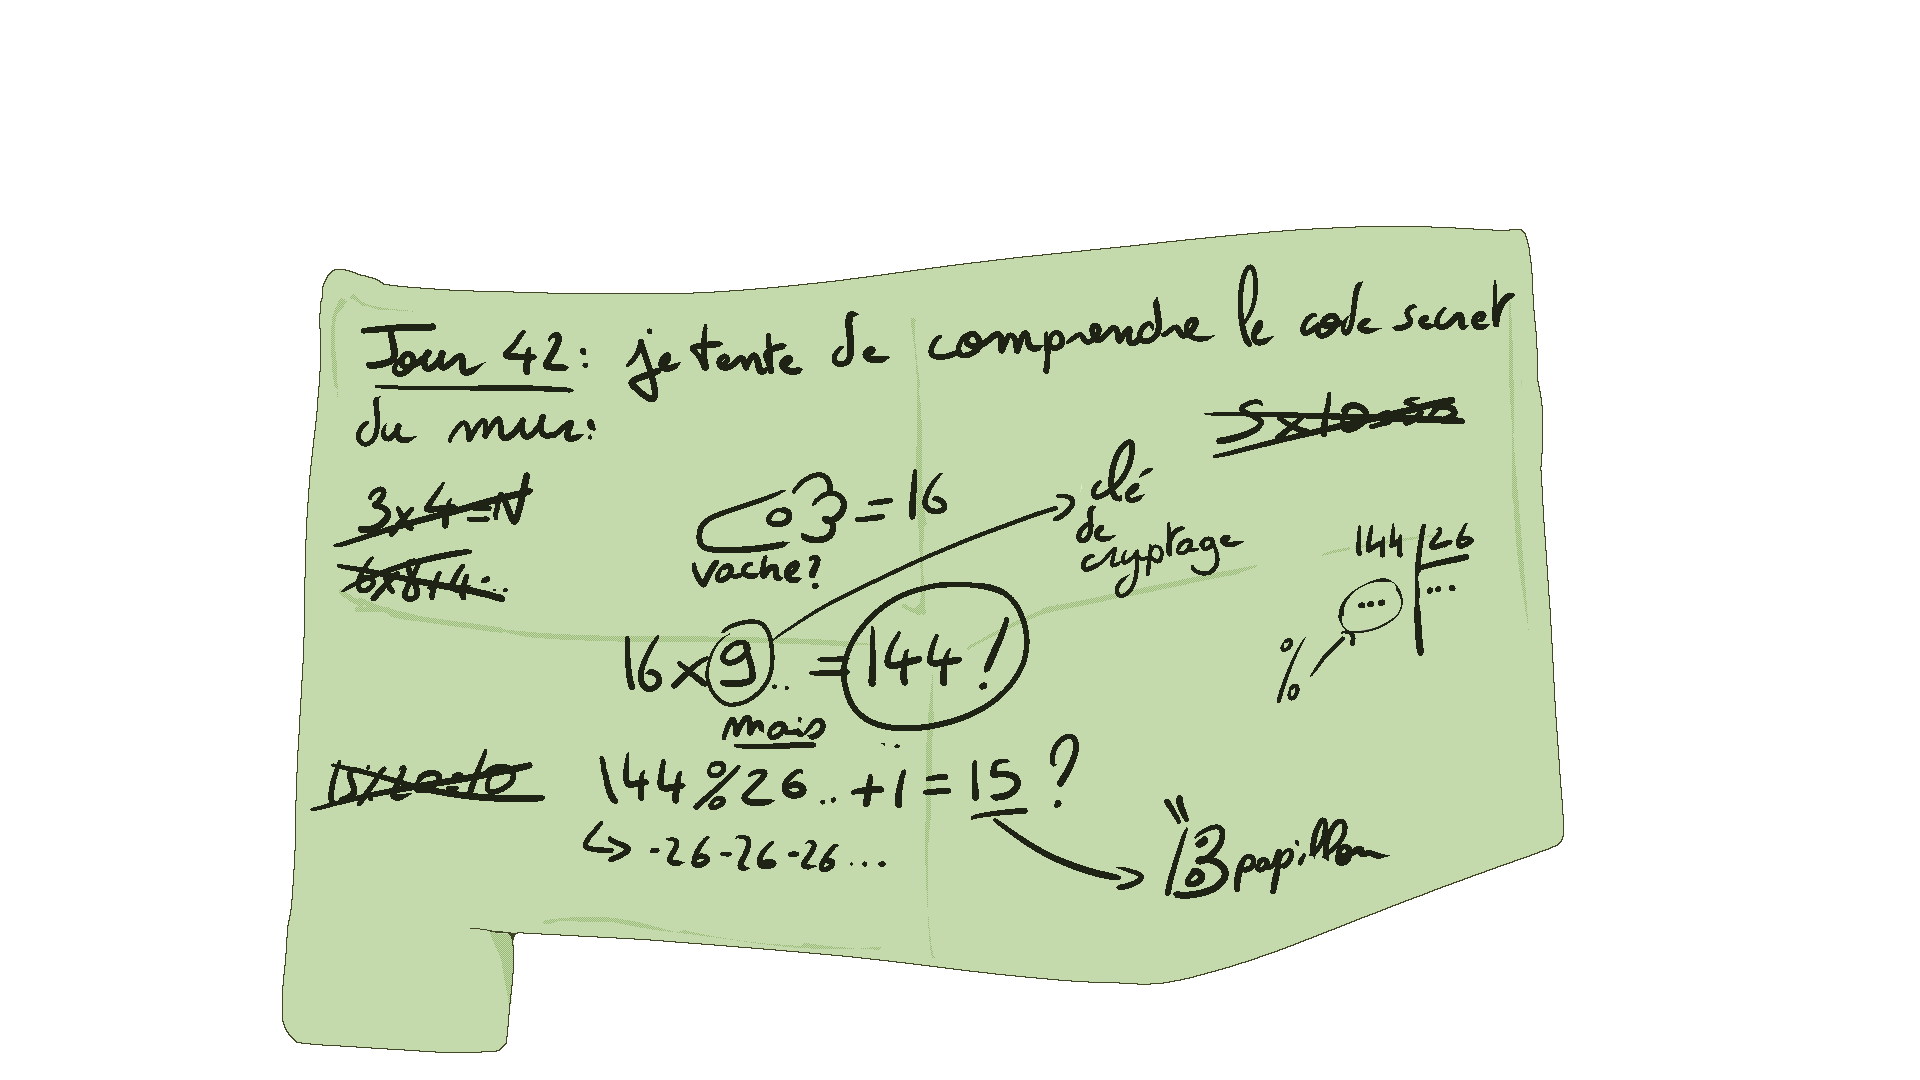 Jour 42: je tente de comprendre le code secret
du mur:
5x10=50
3x4=N
6x8+4..
= 16
vache?
clé
de
cryptage
144 26
... ...
%
16x9.. =144!
mais
144%26..+1=15?
↳ -26-26-26...
papillon